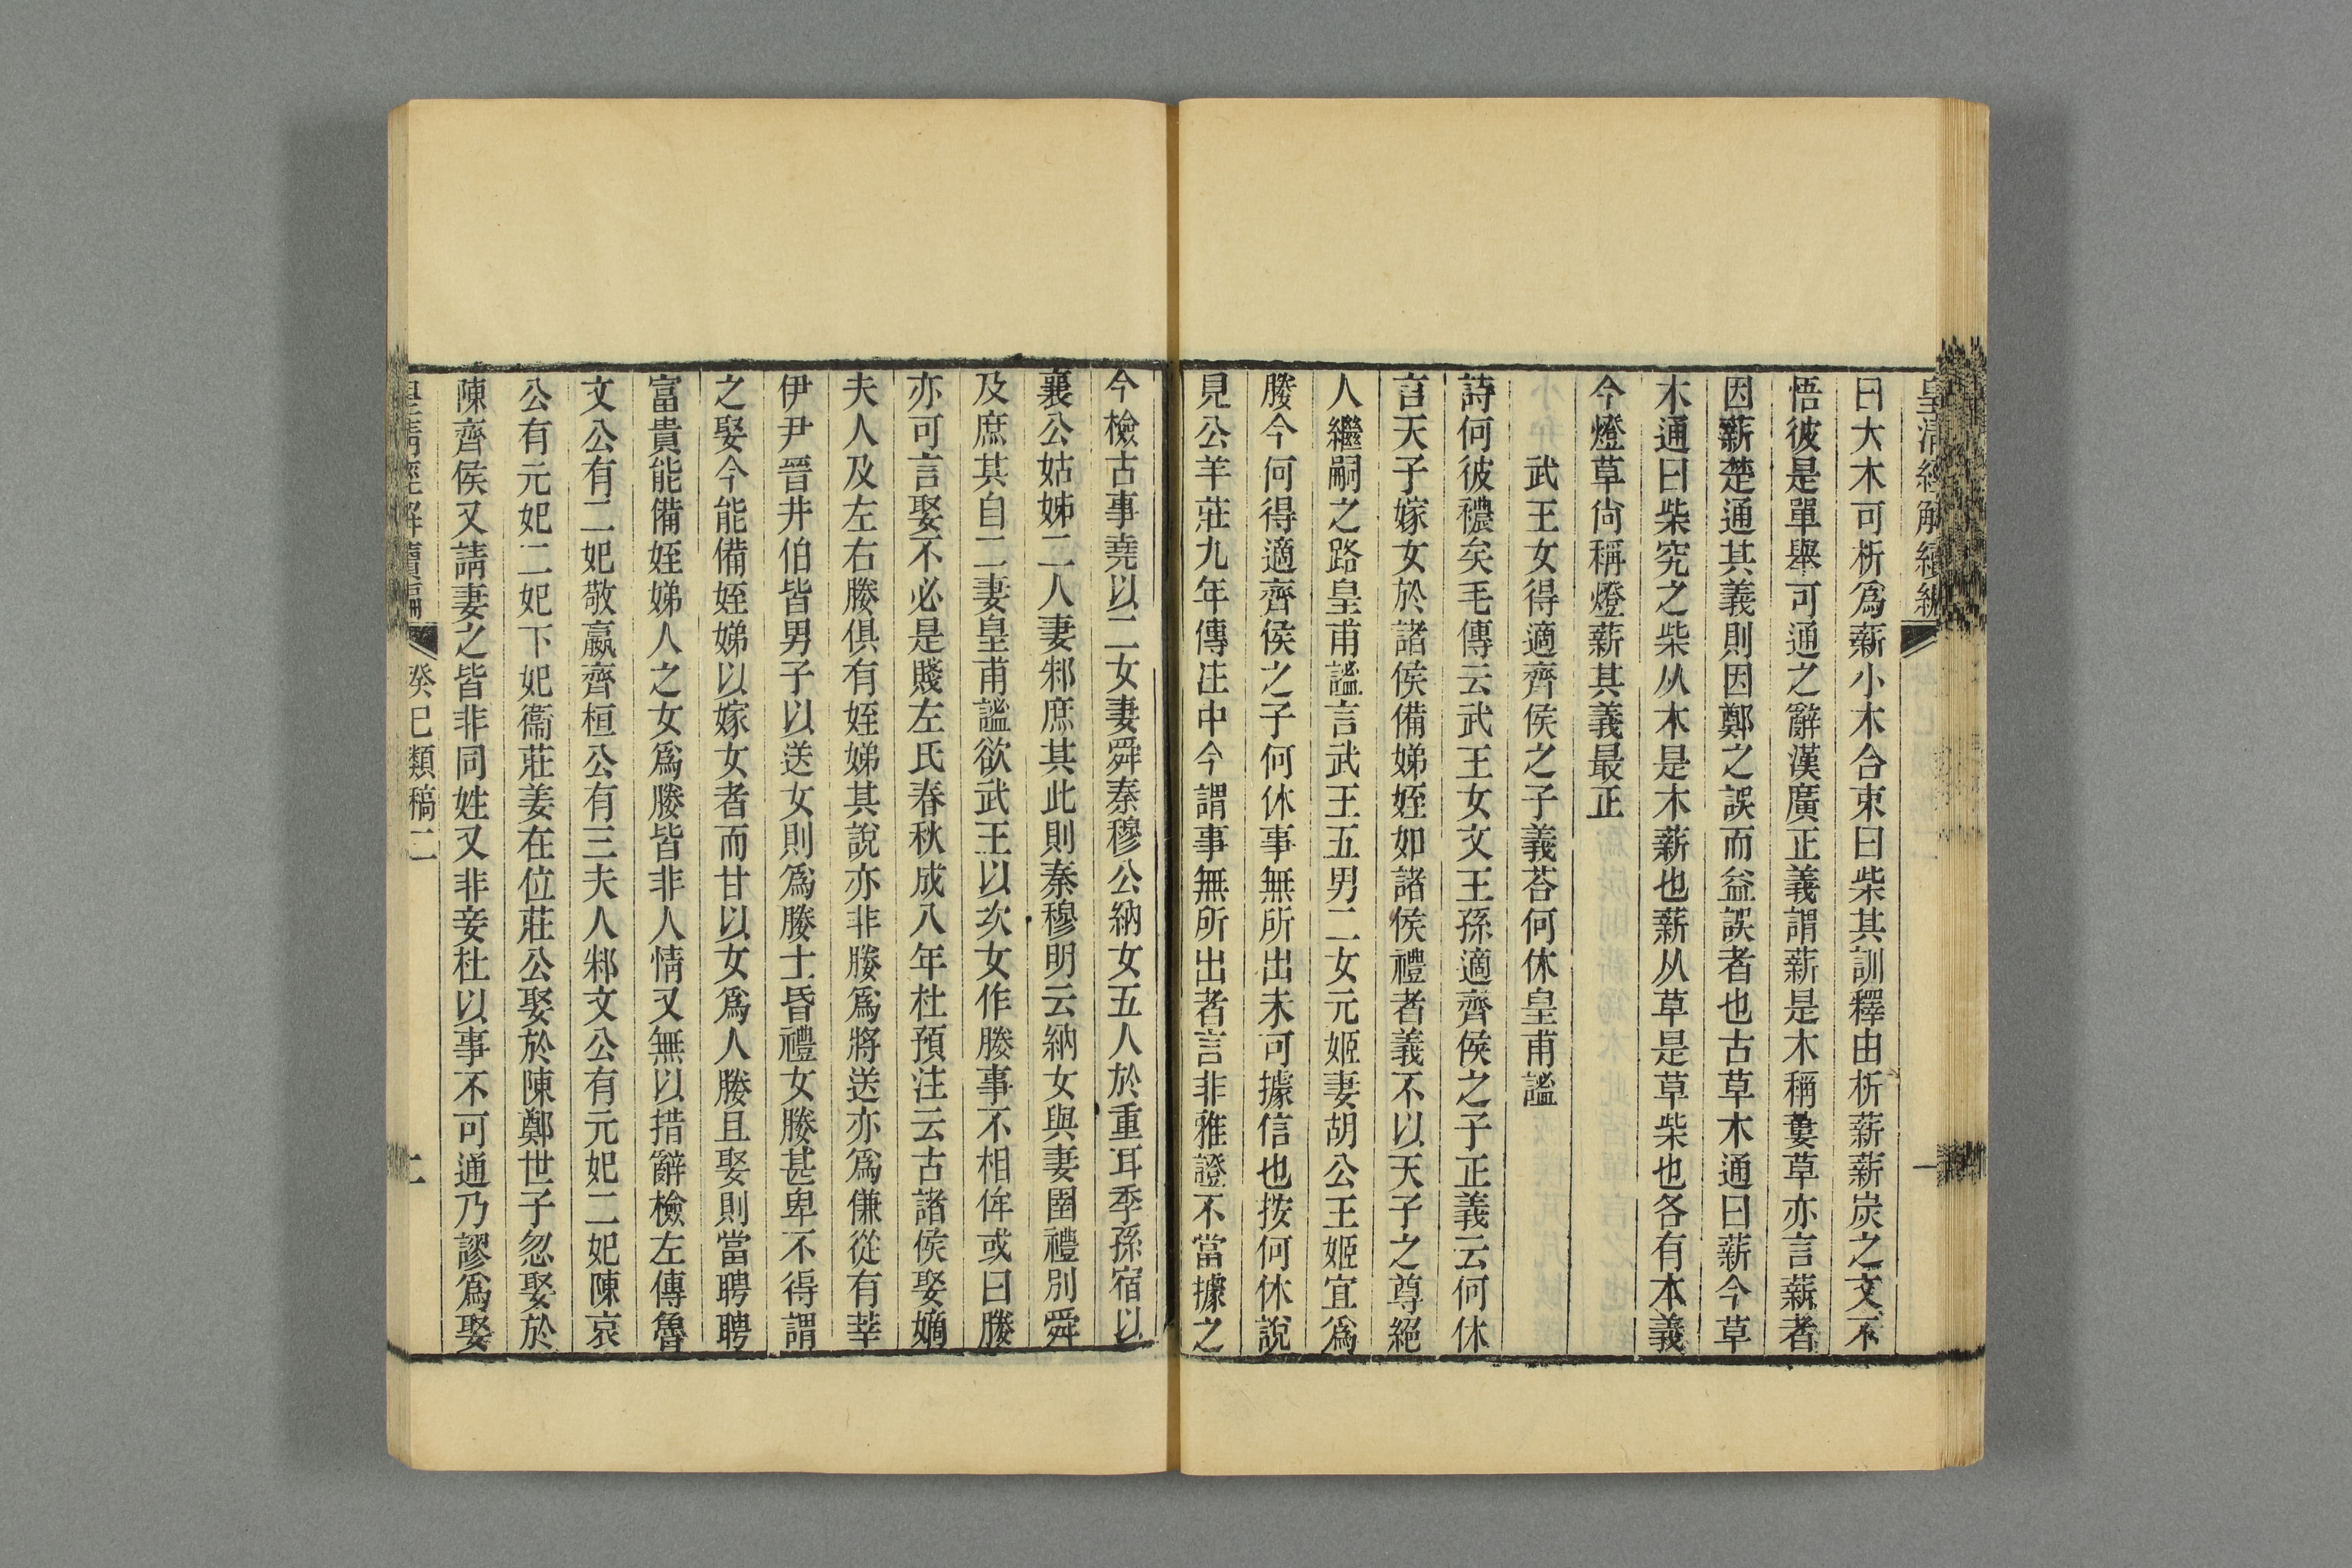 皇清經解續編
一
曰大木可析爲薪小木合束曰柴其訓釋由析薪薪炭之文不
悟彼是單舉可通之辭漢廣正義謂薪是木稱蔞草亦言薪者
因薪楚通其義則因鄭之誤而益誤者也古草木通曰薪今草
木通曰柴究之柴从木是木薪也薪从草是草柴也各有本義
今燈草尙稱燈薪其義最正
武王女得適齊侯之子義荅何休皇甫謐
詩何彼穠矣毛傳云武王女文王孫適齊侯之子正義云何休
言天子嫁女於諸侯備娣姪如諸侯禮者義不以天子之尊絕
人繼嗣之路皇甫謐言武王五男二女元姬妻胡公王姬宜爲
媵今何得適齊侯之子何休事無所出未可據信也按何休說
見公羊莊九年傳注中今謂事無所出者言非雅證不當據之
今檢古事堯以二女妻舜秦穆公納女五人於重耳季孫宿以
襄公姑姊二人妻邾庶其此則秦穆明云納女與妻圉禮別舜
及庶其自二妻皇甫謐欲武王以次女作媵事不相侔或曰媵
亦可言娶不必是賤左氏春秋成八年杜預注云古諸侯娶嫡
夫人及左右媵俱有姪娣其說亦非媵爲將送亦爲傔從有莘
伊尹晉井伯皆男子以送女則爲媵士昏禮女媵甚卑不得謂
之娶今能備姪娣以嫁女者而甘以女爲人媵且娶則當聘聘
富貴能備姪娣人之女爲媵皆非人情又無以措辭檢左傳魯
文公有二妃敬嬴齊桓公有三夫人邾文公有元妃二妃陳哀
公有元妃二妃下妃衞莊姜在位莊公娶於陳鄭世子忽娶於
陳齊侯又請妻之皆非同姓又非妾杜以事不可通乃謬爲娶
皇清經解續編
癸巳類稿二
二